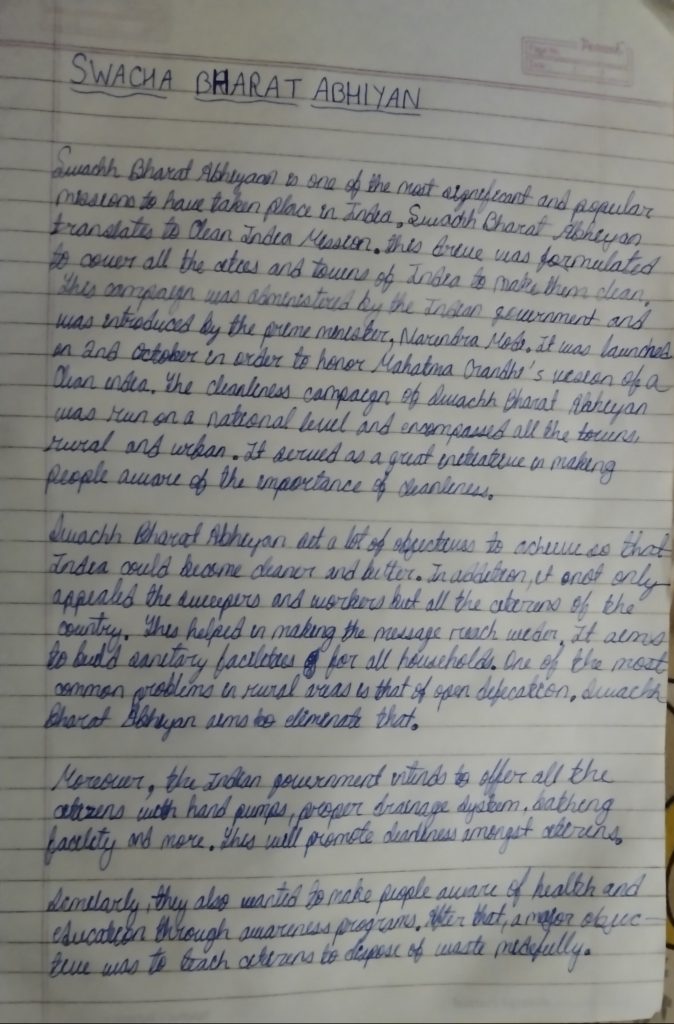 SWACHA BHARAT ABHIYAN
Swachh Bharat Abhiyaan is one of the most significant and popular
missions to have taken place in India. Swachh Bharat Abhiyan
translates to Clean India Mission. This Drive was formulated
to cover all the cities and towns of India to make them clean.
This campaign was administered by the Indian government and
was introduced by the prime minister, Narendra Modi. It was launched
on 2nd October in order to honor Mahatma Gandhi's vision of a
Clean india. The cleanliness campaign of Swachh Bharat Abhiyan
was run on a national level and encompassed all the towns,
rural and urban. It served as a great initiative in making
people aware of the importance of cleanliness.
Swachh Bharat Abhiyan set a lot of objectives to achieve so that
India could become cleaner and better. In addition, it not only
appealed the sweepers and workers but all the citizens of the
country. This helped in making the message reach wider. It aims
to build sanitary facilities for all households. One of the most
common problems in rural areas is that of open defecation. Swachh
Bharat Abhiyan aims to eliminate that.
Moreover, the Indian government intends to offer all the
citizens with hand pumps, proper drainage system, bathing
facility and more. This will promote cleanliness amongst citizens.
Similarly, they also wanted to make people aware of health and
education through awareness programs. After that, a major objec-
tive was to teach citizens to dispose of waste mindfully.